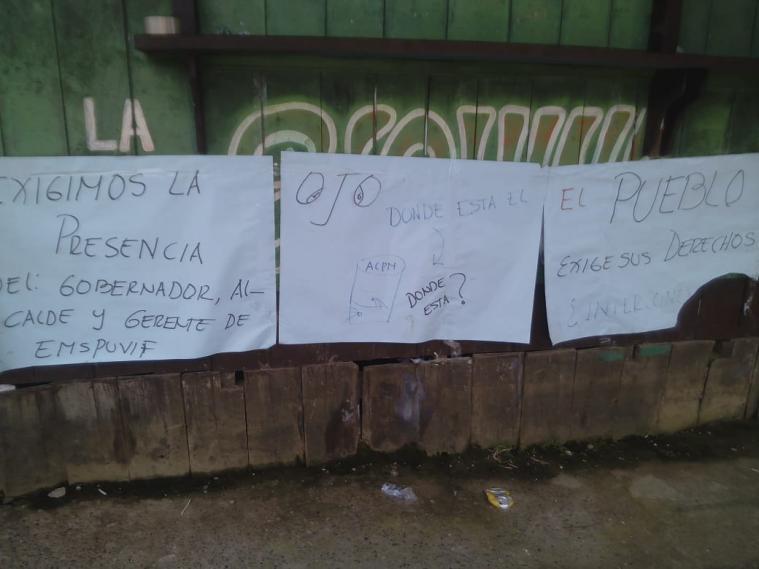 LA
EXIGIMOS LA
PRESENCIA
DEL: GOBERNADOR, AL-
CALDE Y GERENTE DE
EMSPUVIF
OJO
DONDE ESTA EL
ACPM
DONDE
ESTA?
EL PUEBLO
EXIGE SUS DERECHOS